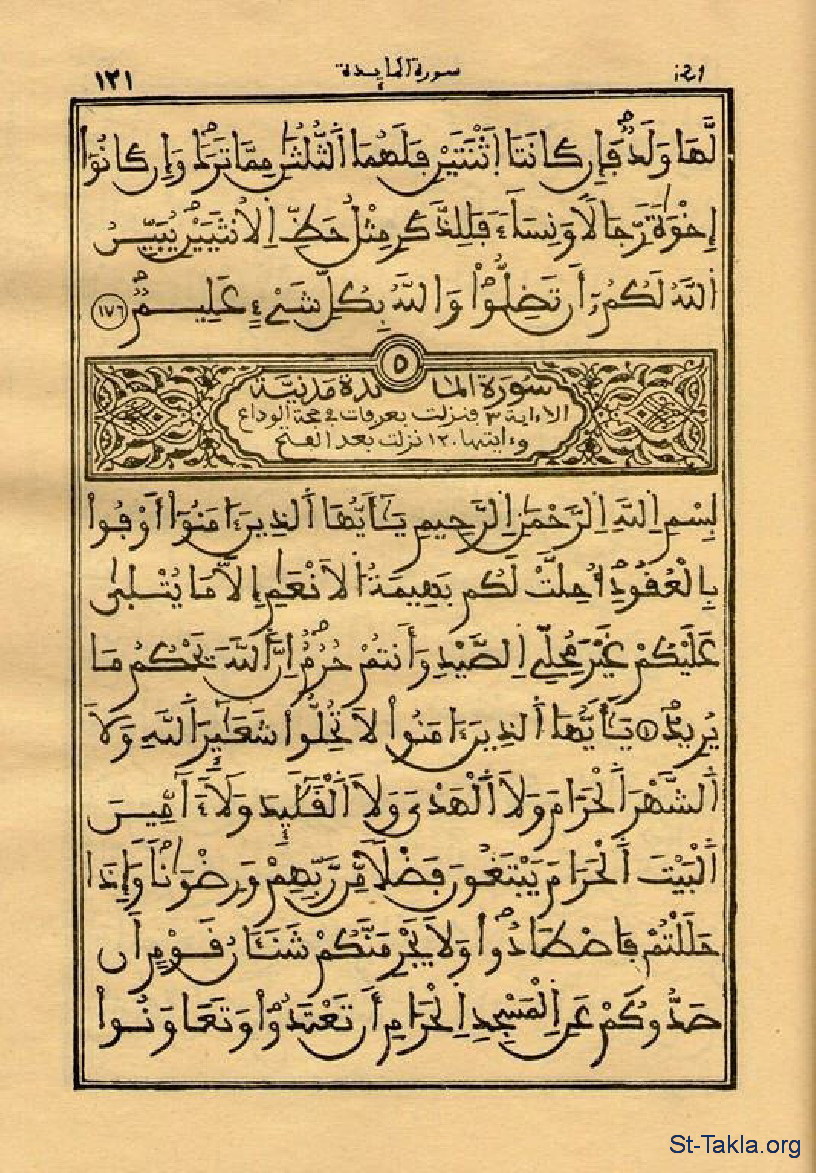 سورة المايدة ١٢١
لَّهَا وَلَدٌ فَإِن كَانَتَا اَثْنَتَيْنِ فَلَهُمَا اَلثُّلُثَٰنِ مِمَّا تَرَكَ وَإِن كَانُوٓاْ
إِخْوَةً رِّجَالًا وَنِسَآءً فَلِلذَّكَرِ مِثْلُ حَظِّ اِلُانثَيَيْنِ يُبَيِّنُ
اُللَّهُ لَكُمُۥٓ أَن تَضِلُّواْ وَاللَّهُ بِكُلِّ شَيْءٍ عَلِيمٌ ١٧٦
٥
سورة المائدة مدنية
الا ءاية ٣ فنزلت بعرفات في حجة الوداع
وءايتها ١٢٠ نزلت بعد الفتح
بِسْمِ اِللَّهِ اِلرَّحْمَٰنِ اِلرَّحِيمِ يَٰٓأَيُّهَا اَلذِينَ ءَامَنُوٓاْ أَوْفُواْ
بِالْعُقُودِ أُحِلَّتْ لَكُم بَهِيمَةُ اُلَانْعَٰمِ إِلَّا مَا يُتْلَىٰ
عَلَيْكُمْ غَيْرَ مُحِلِّي اِلصَّيْدِ وَأَنتُمْ حُرُمٌ إِنَّ اَللَّهَ يَحْكُمُ مَا
يُرِيدُ ١ يَٰٓأَيُّهَا اَلذِينَ ءَامَنُواْ لَا تُحِلُّواْ شَعَٰٓئِرَ اَللَّهِ وَلَا
اَلشَّهْرَ اَلْحَرَامَ وَلَا اَلْهَدْيَ وَلَا اَلْقَلَٰٓئِدَ وَلَآ ءَآمِّينَ
اَلْبَيْتَ اَلْحَرَامَ يَبْتَغُونَ فَضْلًا مِّن رَّبِّهِمْ وَرِضْوَٰنًا وَإِذَا
حَلَلْتُمْ فَاصْطَادُواْ وَلَا يَجْرِمَنَّكُمْ شَنَـَٔانُ قَوْمٍ أَن
صَدُّوكُمْ عَنِ اِلْمَسْجِدِ اِلْحَرَامِ أَن تَعْتَدُواْ وَتَعَاوَنُواْ
St-Takla.org